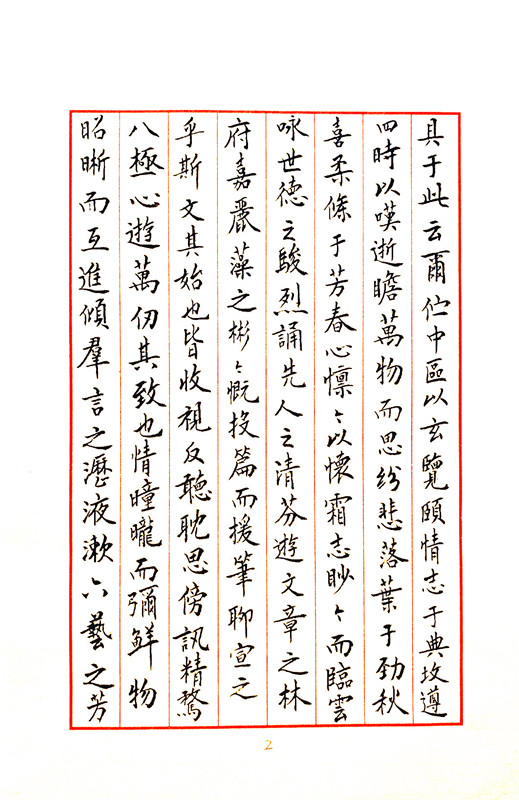 具于此云爾佇中區以玄覽頤情志于典墳遵
四時以嘆逝瞻萬物而思紛悲落葉于勁秋
喜柔條于芳春心懍々以懷霜志眇々而臨雲
咏世德之駿烈誦先人之清芬遊文章之林
府嘉麗藻之彬々慨投篇而援筆聊宣之
乎斯文其始也皆收視反聽耽思傍訊精騖
八極心遊萬仞其致也情曈曨而彌鮮物
昭晰而互進傾羣言之瀝液漱六藝之芳
2